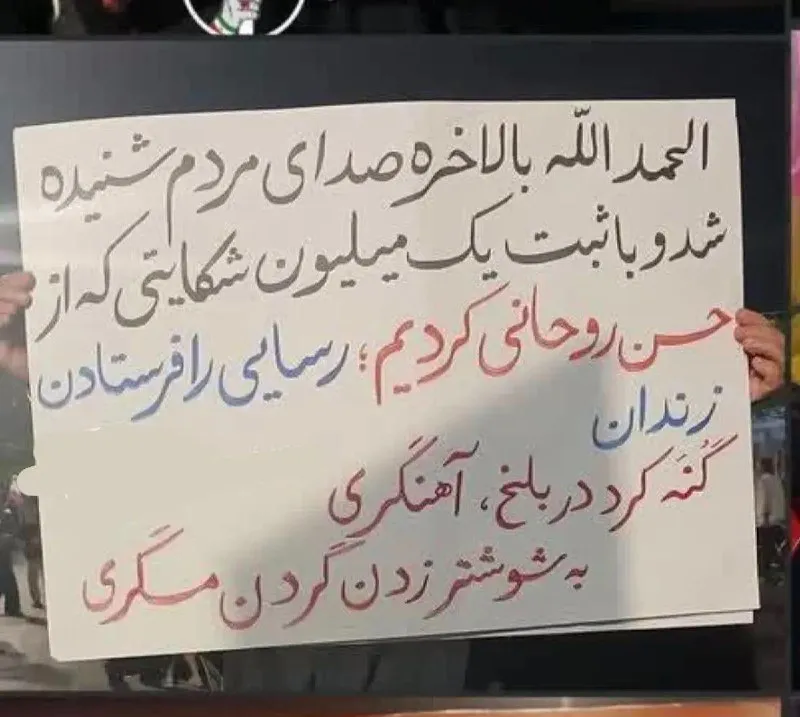 الحمدالله بالاخره صدای مردم شنیده
شد و با ثبت یک میلیون شکایتی که از
حسن روحانی کردیم؛ رسایی را فرستادن
زندان
گُنَه کرد در بلخ، آهنگری
به شوشتر زدن گردن مسگری